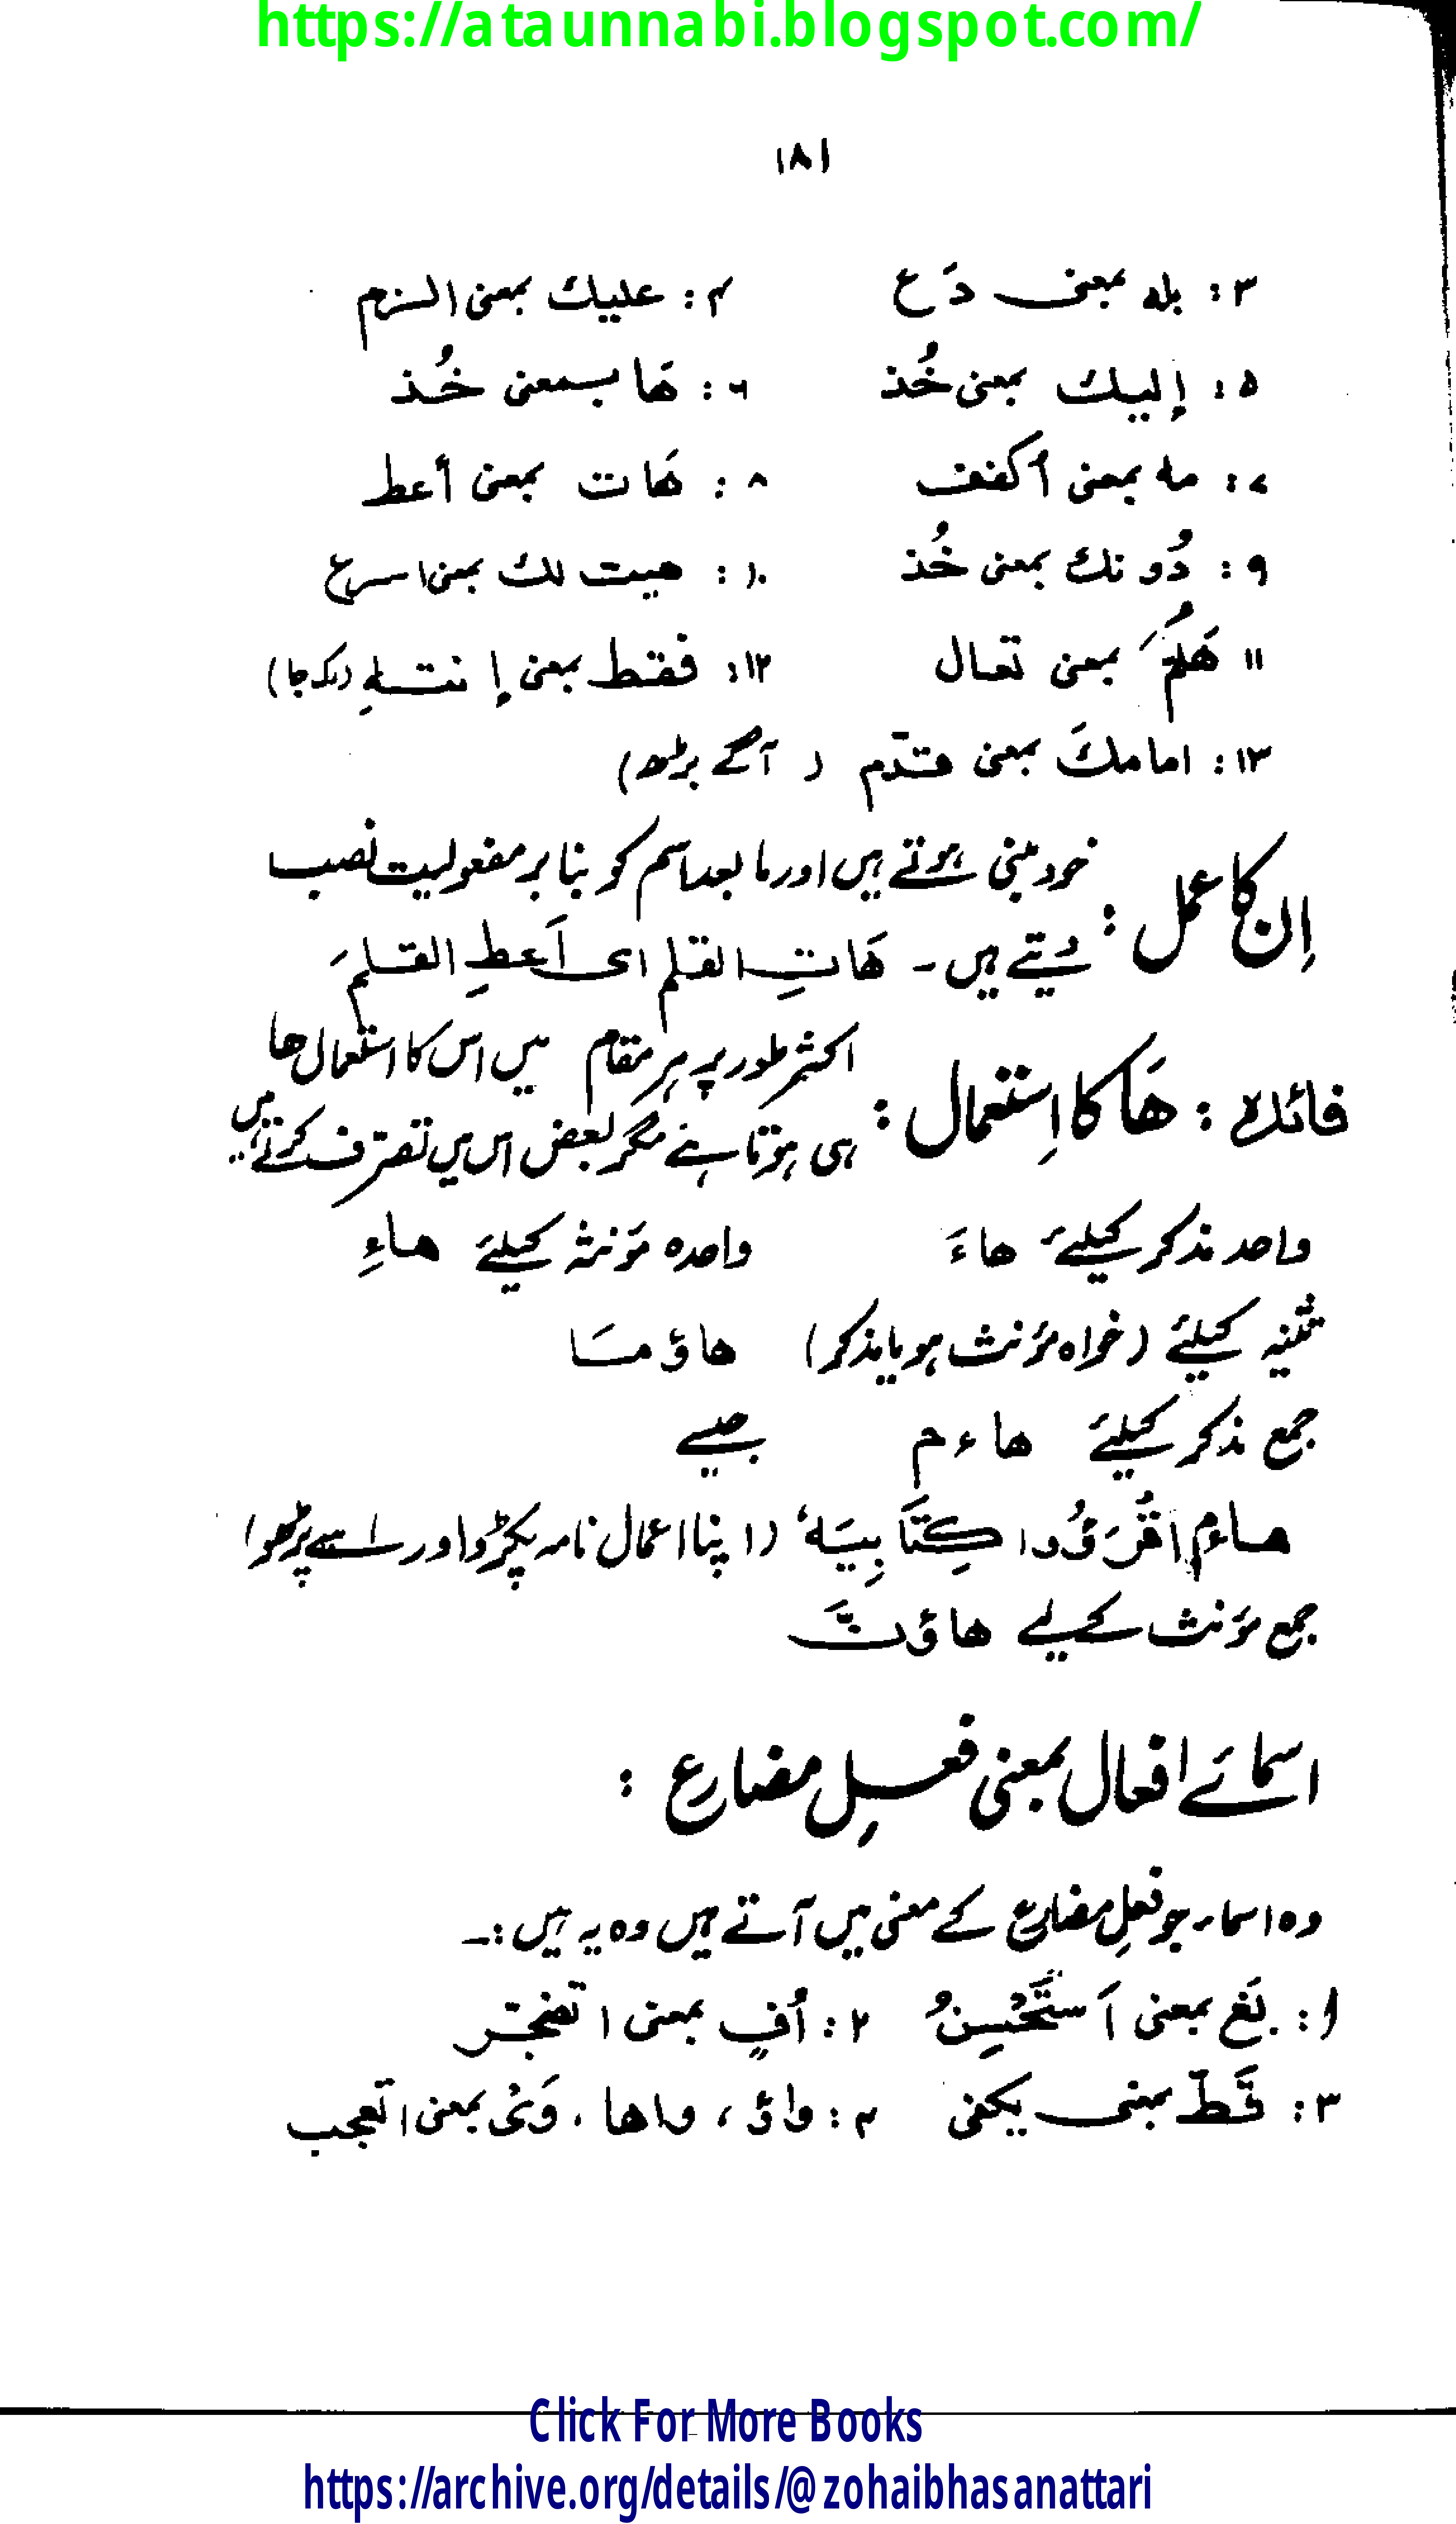 https://ataunnabi.blogspot.com/
۱۸۱
۳: بله بمعنی دَع ۴: علیك بمعنی الزم
۵: إلیك بمعنی خُذ ۶: هَا بمعنی خُذ
۷: مه بمعنی أکفف ۸: هَات بمعنی أعط
۹: دُونك بمعنی خُذ ۱۰: هیت لك بمعنی اسرع
۱۱ هَلُمَّ بمعنی تعال ۱۲: فقط بمعنی إنتهِ (رک جا)
۱۳: امامكَ بمعنی قدّم ( آگے بڑھ)
اِن کا عمل: خود مبنی ہوتے ہیں اور ما بعد اسم کو بنا بر مفعولیت نصب
دیتے ہیں۔ هَاتِ القلم ای اَعطِ القلمَ
فائدہ: هَا کا اِستعمال: اکثر طور پر ہر مقام میں اس کا استعمال ها
ہی ہوتا ہے مگر بعض اس میں تصرف کرتے ہیں
واحد مذکر کیلئے هاءَ واحدہ مؤنثہ کیلئے هاءِ
تثنیہ کیلئے (خواہ مؤنث ہو یا مذکر) هاؤمَا
جمع مذکر کیلئے هاءم جیسے
هاؤم اقْرَؤُوا کِتَابِیَه (اپنا اعمال نامہ پکڑو اور اسے پڑھو)
جمع مؤنث کے لیے هاؤنَّ
اسمائے افعال بمعنی فعلِ مضارع :
وہ اسماء جو فعلِ مضارع کے معنی میں آتے ہیں وہ یہ ہیں:۔
۱: بَغ بمعنی اَستَحْسِنُ ۲: اُفٍ بمعنی اتضجر
۳: قَطّ بمعنی یکفی ۴: واؤ، واها، وَیْ بمعنی اتعجب
Click For More Books
https://archive.org/details/@zohaibhasanattari